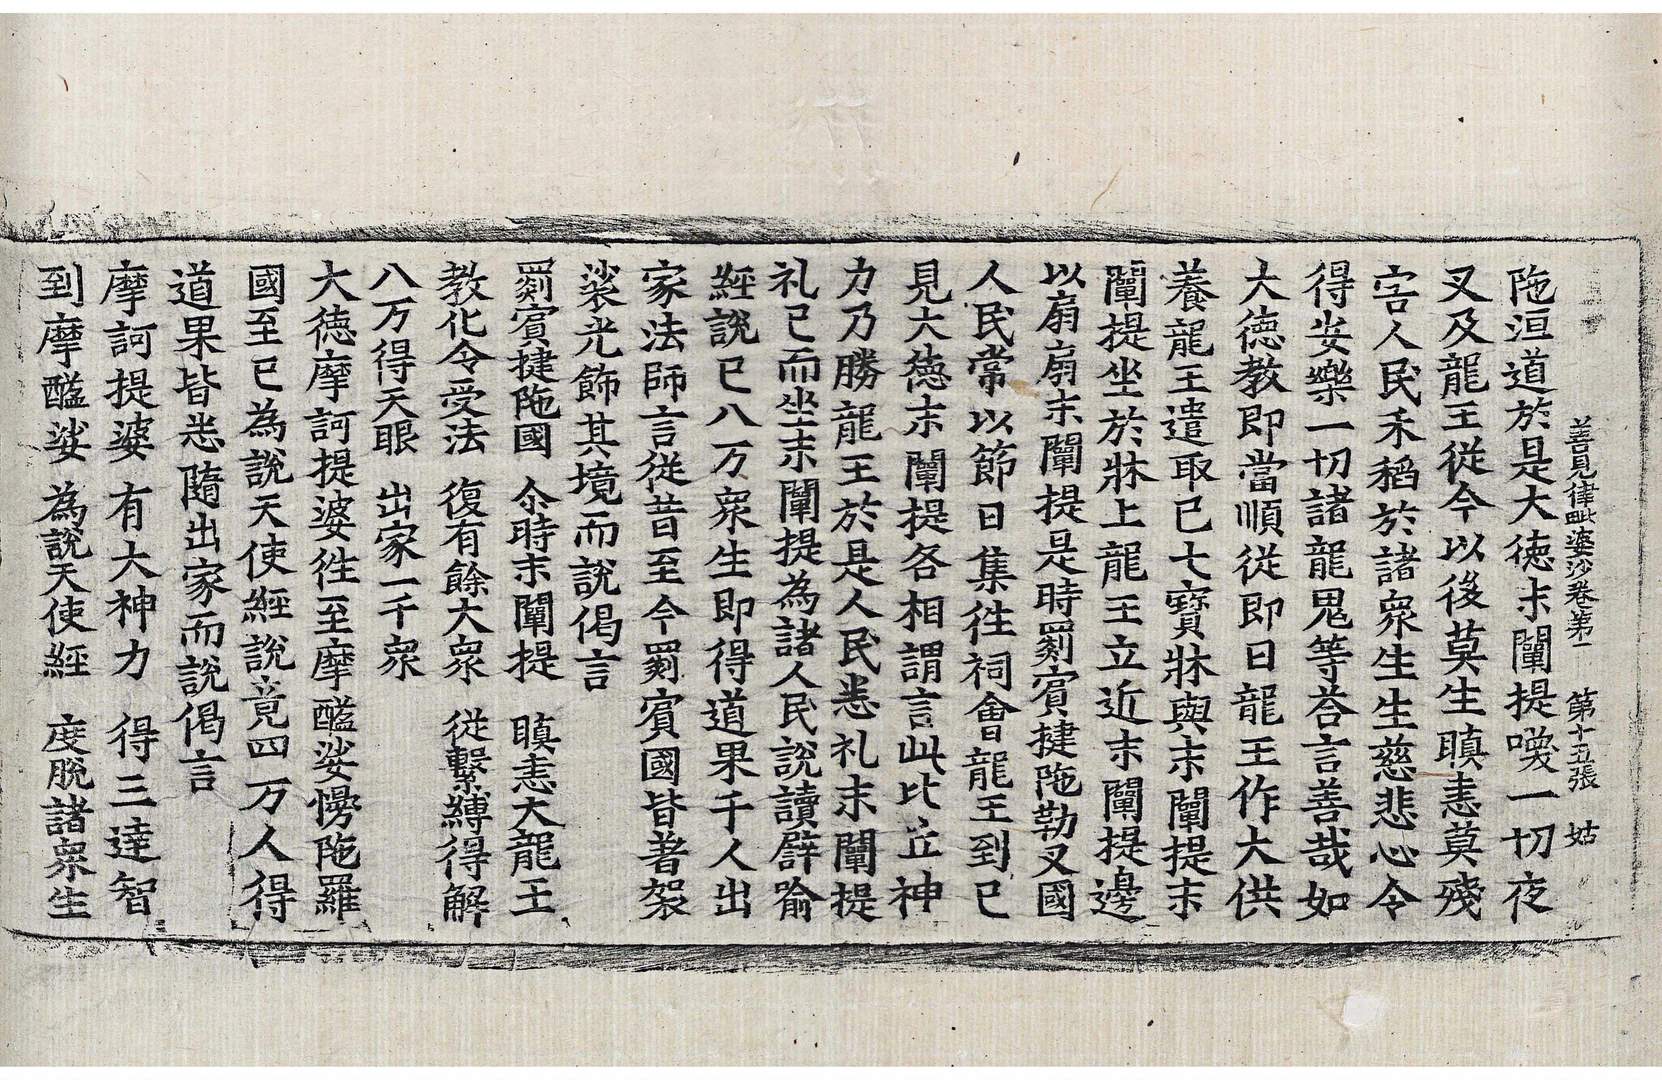 善見律毗婆沙卷第二　第十五張　姑
陁洹道於是大徳末闡提喚一切夜
叉及龍王從今以後莫生瞋恚莫殘
害人民禾稻於諸衆生生慈悲心令
得安樂一切諸龍鬼等荅言善哉如
大徳教即當順從即日龍王作大供
養龍王遣取已七寶牀與末闡提末
闡提坐於牀上龍王立近末闡提邊
以扇扇末闡提是時罽賔揵陁勒叉國
人民常以節日集徃祠會龍王到已
見大徳末闡提各相謂言此比丘神
力乃勝龍王於是人民悉礼末闡提
礼已而坐末闡提為諸人民說讀譬喻
經說已八万衆生即得道果千人出
家法師言從昔至今罽賔國皆著袈
裟光飾其境而說偈言
罽賔揵陁國　尒時末闡提　瞋恚大龍王
教化令受法　復有餘大衆　從繫縛得解
八万得天眼　出家一千衆
大徳摩訶提婆徃至摩醯娑慢陁羅
國至已為說天使經說竟四万人得
道果皆悉隨出家而說偈言
摩訶提婆　有大神力　得三達智
到摩醯娑　為說天使經　度脫諸衆生